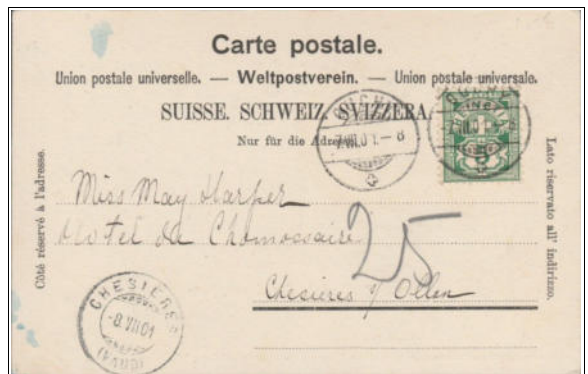 Carte postale.
Union postale universelle. — Weltpostverein. — Unione postale universale.
SUISSE. SCHWEIZ. SVIZZERA.
Nur für die Adresse.
Côté réservé à l'adresse.
Lato riservato all' indirizzo.
Miss May Harper
Hotel du Chamossaire
25
Chesieres s/ Ollon
CHESIERES
-8.VII.01
(VAUD)